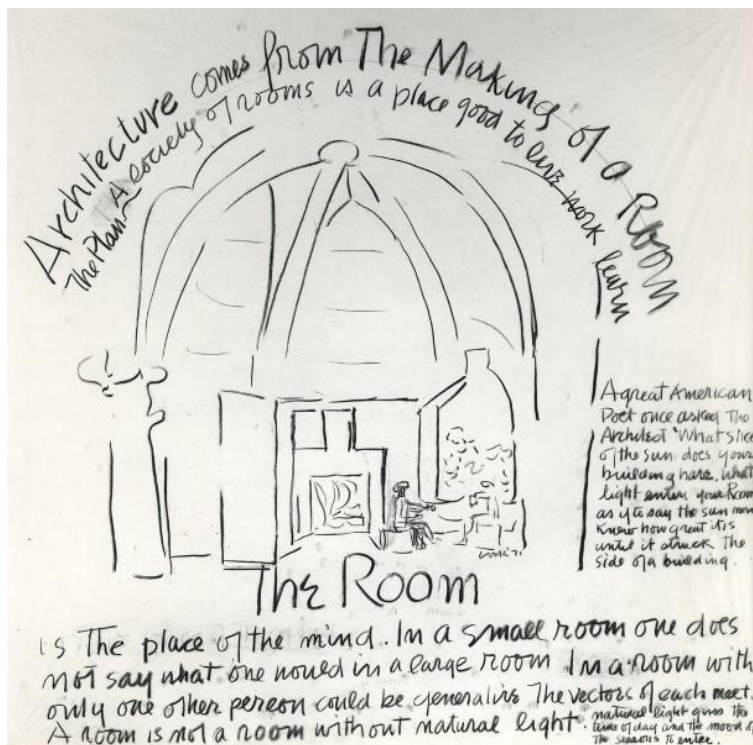 Architecture comes from The Making of a Room
The Plan – A society of rooms is a place good to live work learn
A great American
Poet once asked The
Architect 'What slice
of the sun does your
building have. What
light enters your Room
as if to say the sun never
knew how great it is
until it struck the
side of a building.
The Room
is The place of the mind. In a small room one does
not say what one would in a large room In a room with
only one other person could be generative The vectors of each meet.
A room is not a room without natural light.
natural light gives the
time of day and the mood of
The seasons to enter.